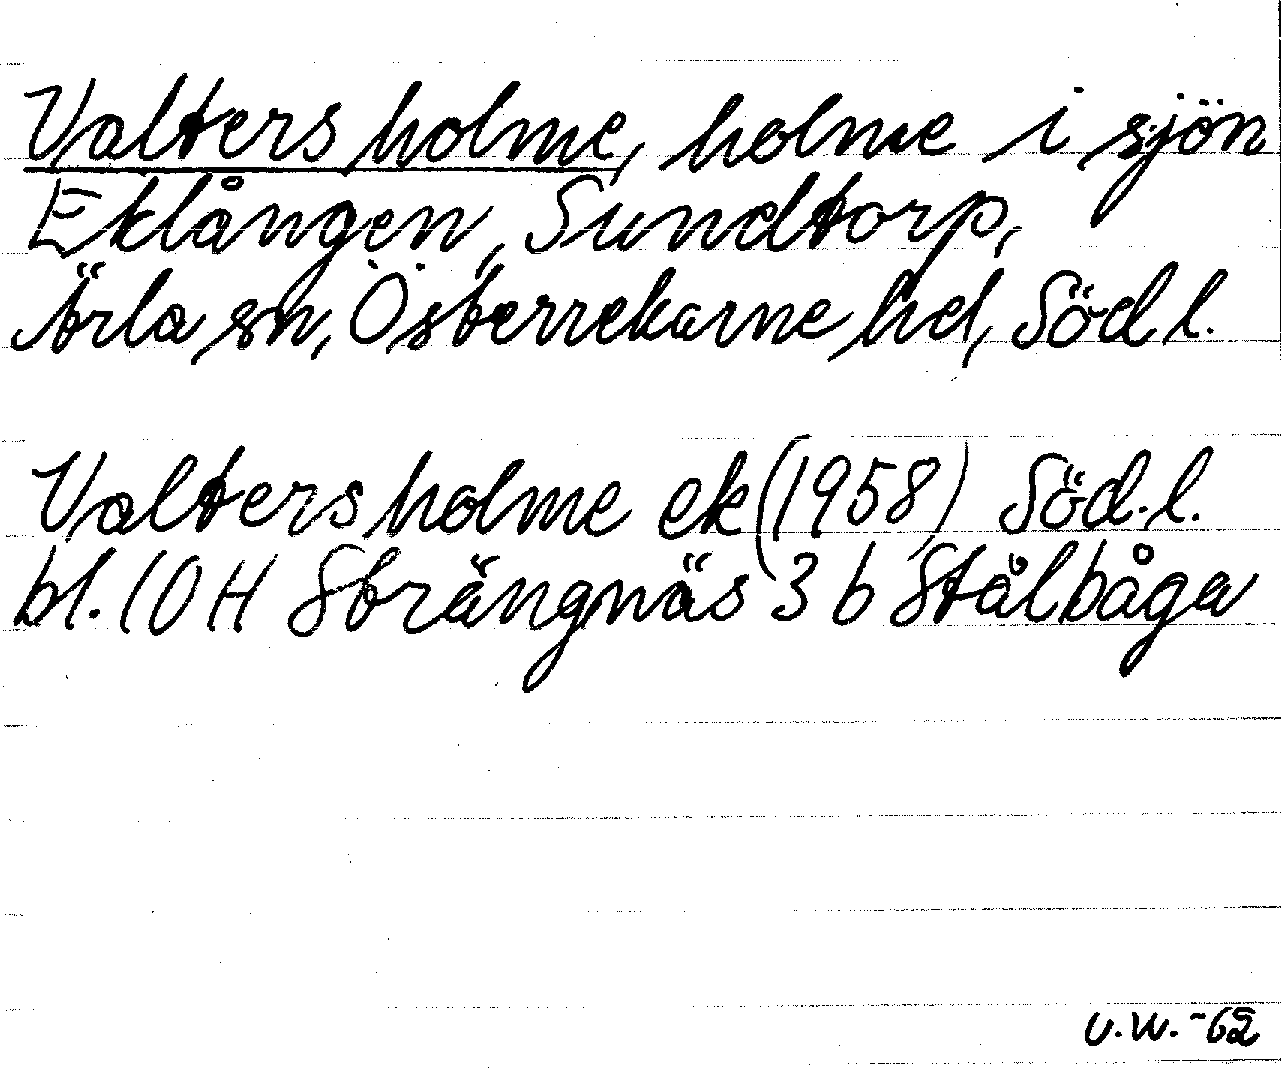 Valters holme, holme i sjön
Eklången, Sundtorp,
Ärla sn, Österrekarne hd, Söd l.
Valters holme ek (1958) Söd. l.
bl. 10 H Strängnäs 3 b Stålbåga
U.W. -62